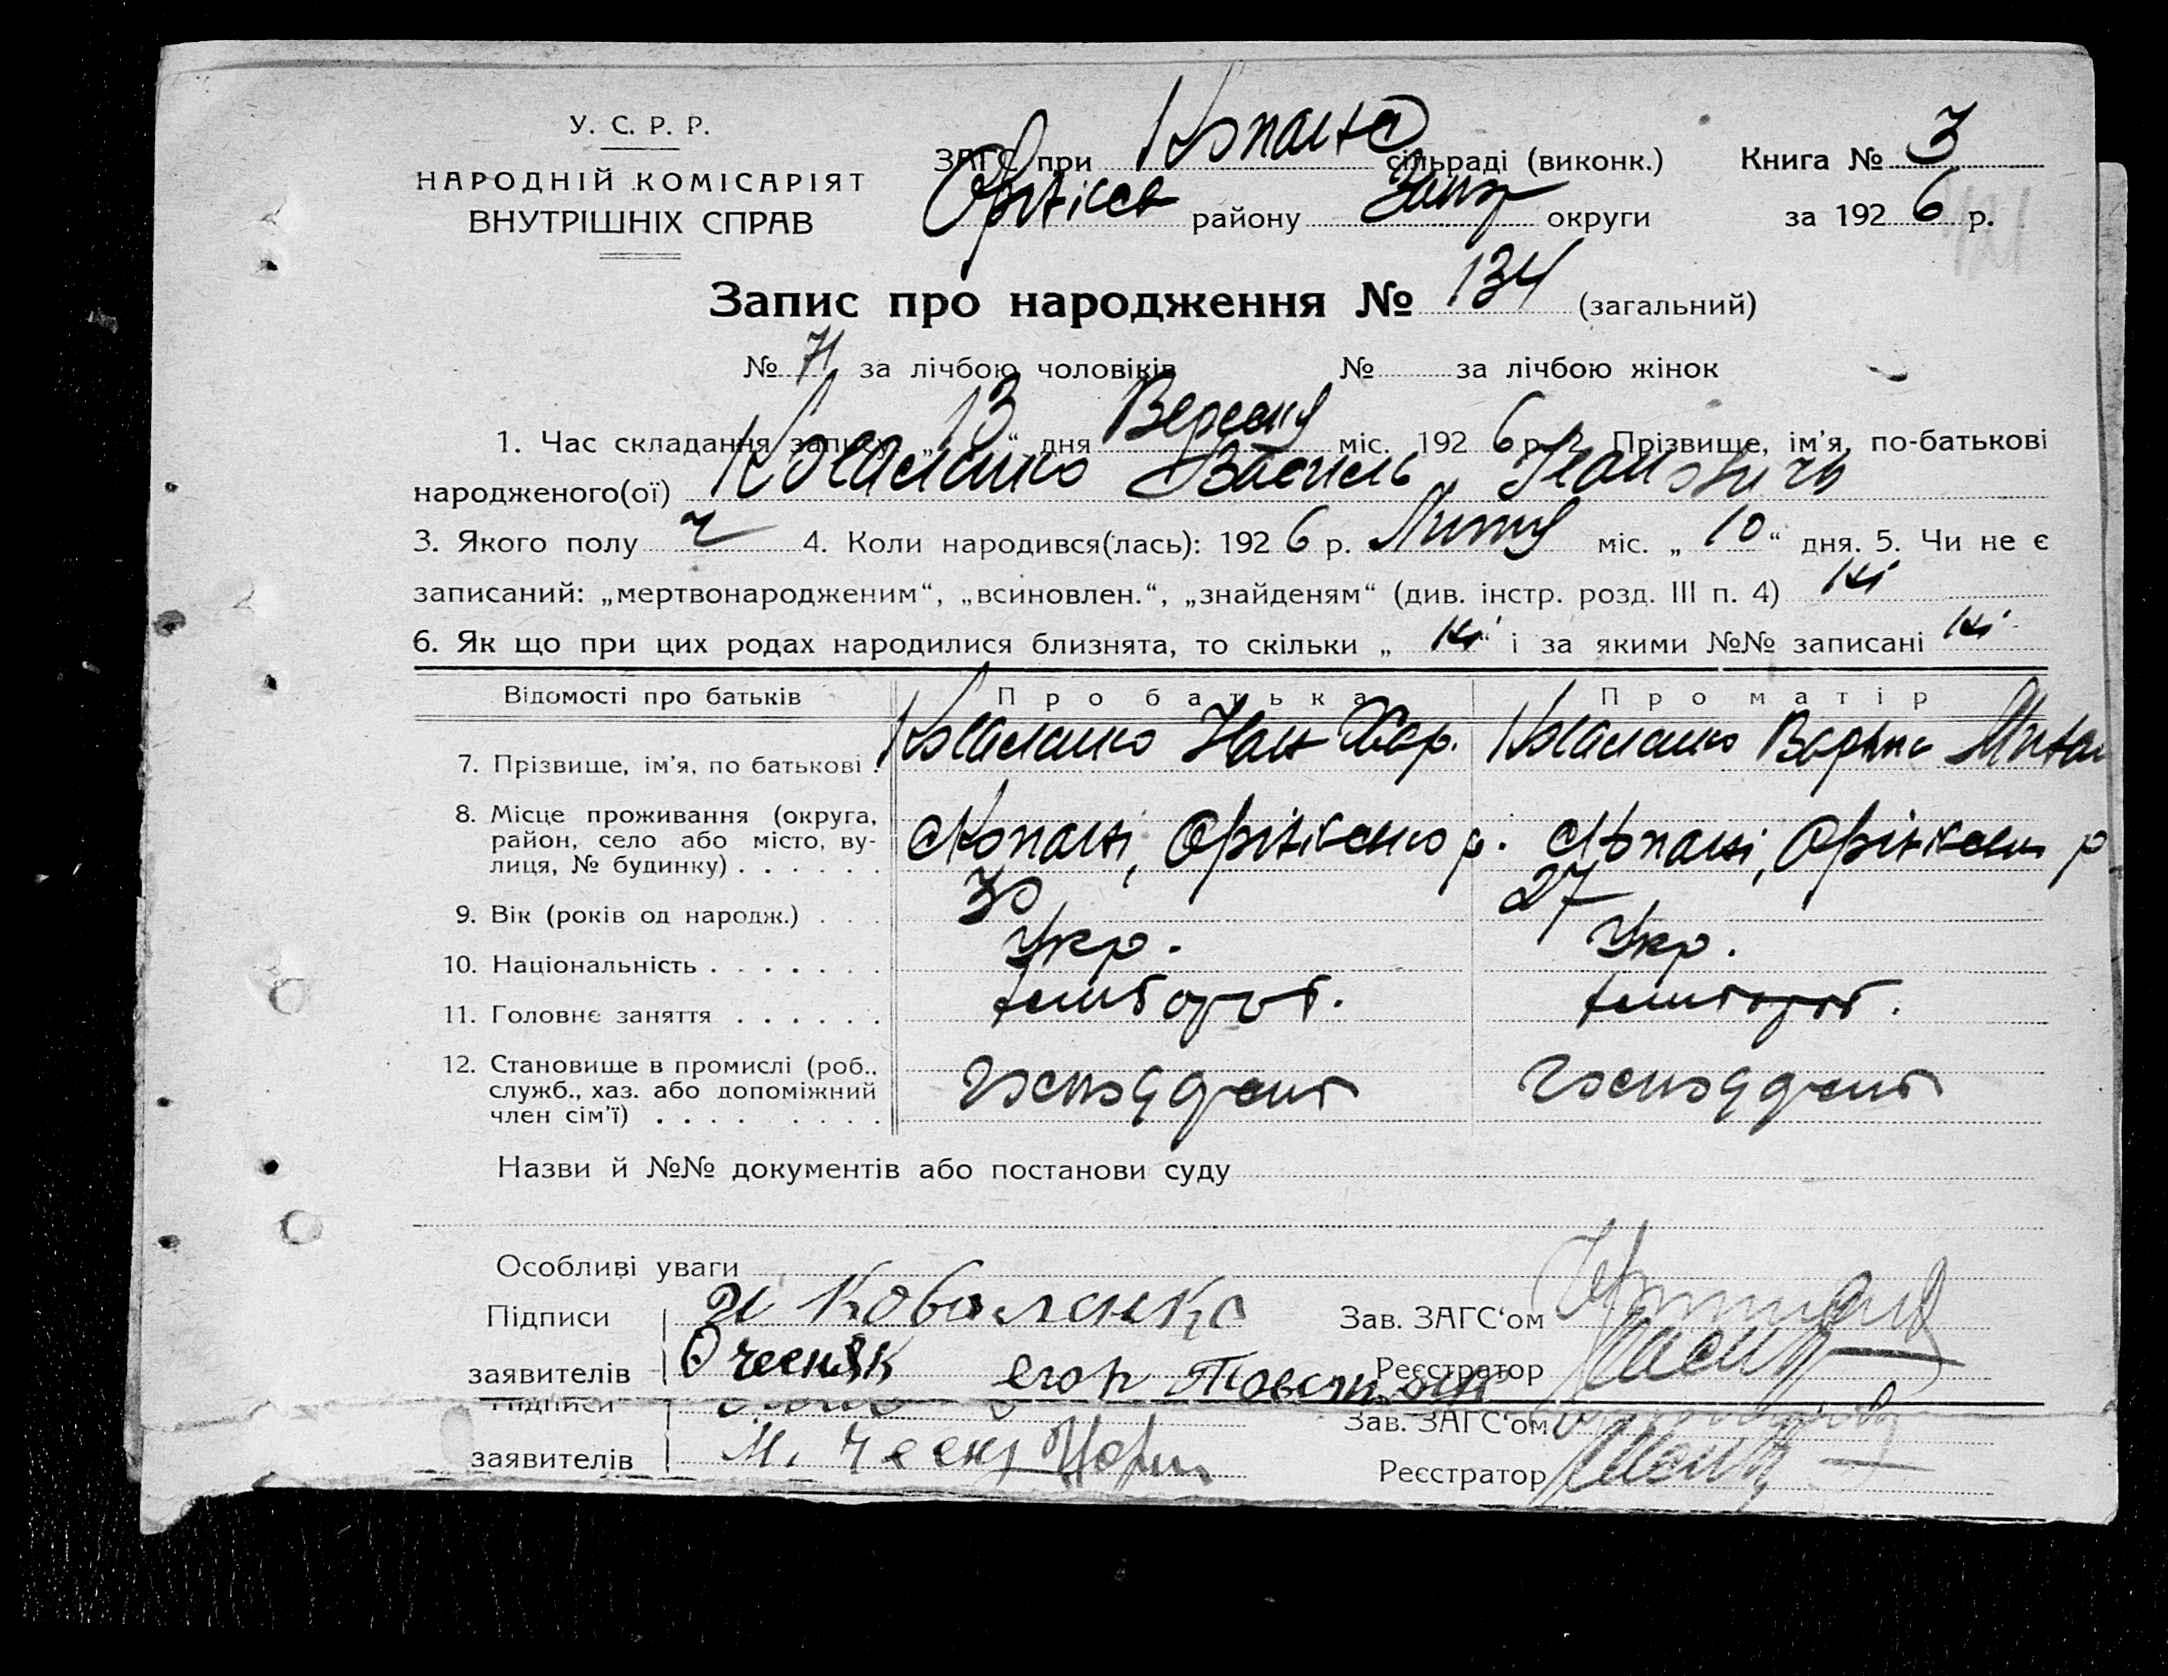 У. С. Р. Р.
НАРОДНІЙ КОМІСАРІЯТ
ВНУТРІШНІХ СПРАВ
ЗАГС при Копана сільраді (виконк.) Книга № 3
Оріхівськ району Запор округи за 1926 р.
Запис про народження № 134 (загальний)
№ 71 за лічбою чоловіків № за лічбою жінок
1. Час складання запису „13“ дня Вересня міс. 1926 р. 2. Прізвище, ім'я, по-батькові
народженого(ої) Коваленко Василь Іванович
3. Якого полу ч 4. Коли народився(лась): 1926 р. Липня міс. „10“ дня. 5. Чи не є
записаний: „мертвонародженим“, „всиновлен.“, „знайденям“ (див. інстр. розд. III п. 4) ні
6. Як що при цих родах народилися близнята, то скільки „ні“ і за якими №№ записані ні
Відомості про батьків Про батька Про матір
7. Прізвище, ім'я, по батькові . Коваленко Іван Хар. Коваленко
8. Місце проживання (округа,
район, село або місто, ву-
лиця, № будинку) . . . . . . Копані, Оріхівсько р. Копані, р
9. Вік (років од народж.) . . . 30 27
10. Національність . . . . . . . Укр. Укр.
11. Головнє заняття . . . . . . хлібороб. хлібороб.
12. Становище в промислі (роб.,
служб., хаз. або допоміжний
член сім'ї) . . . . . . . .
Назви й №№ документів або постанови суду
Особливі уваги
Підписи Коваленко Зав. ЗАГС'ом
заявителів Чесняк Егор Реєстратор
Підписи Зав. ЗАГС'ом
заявителів М. Реєстратор